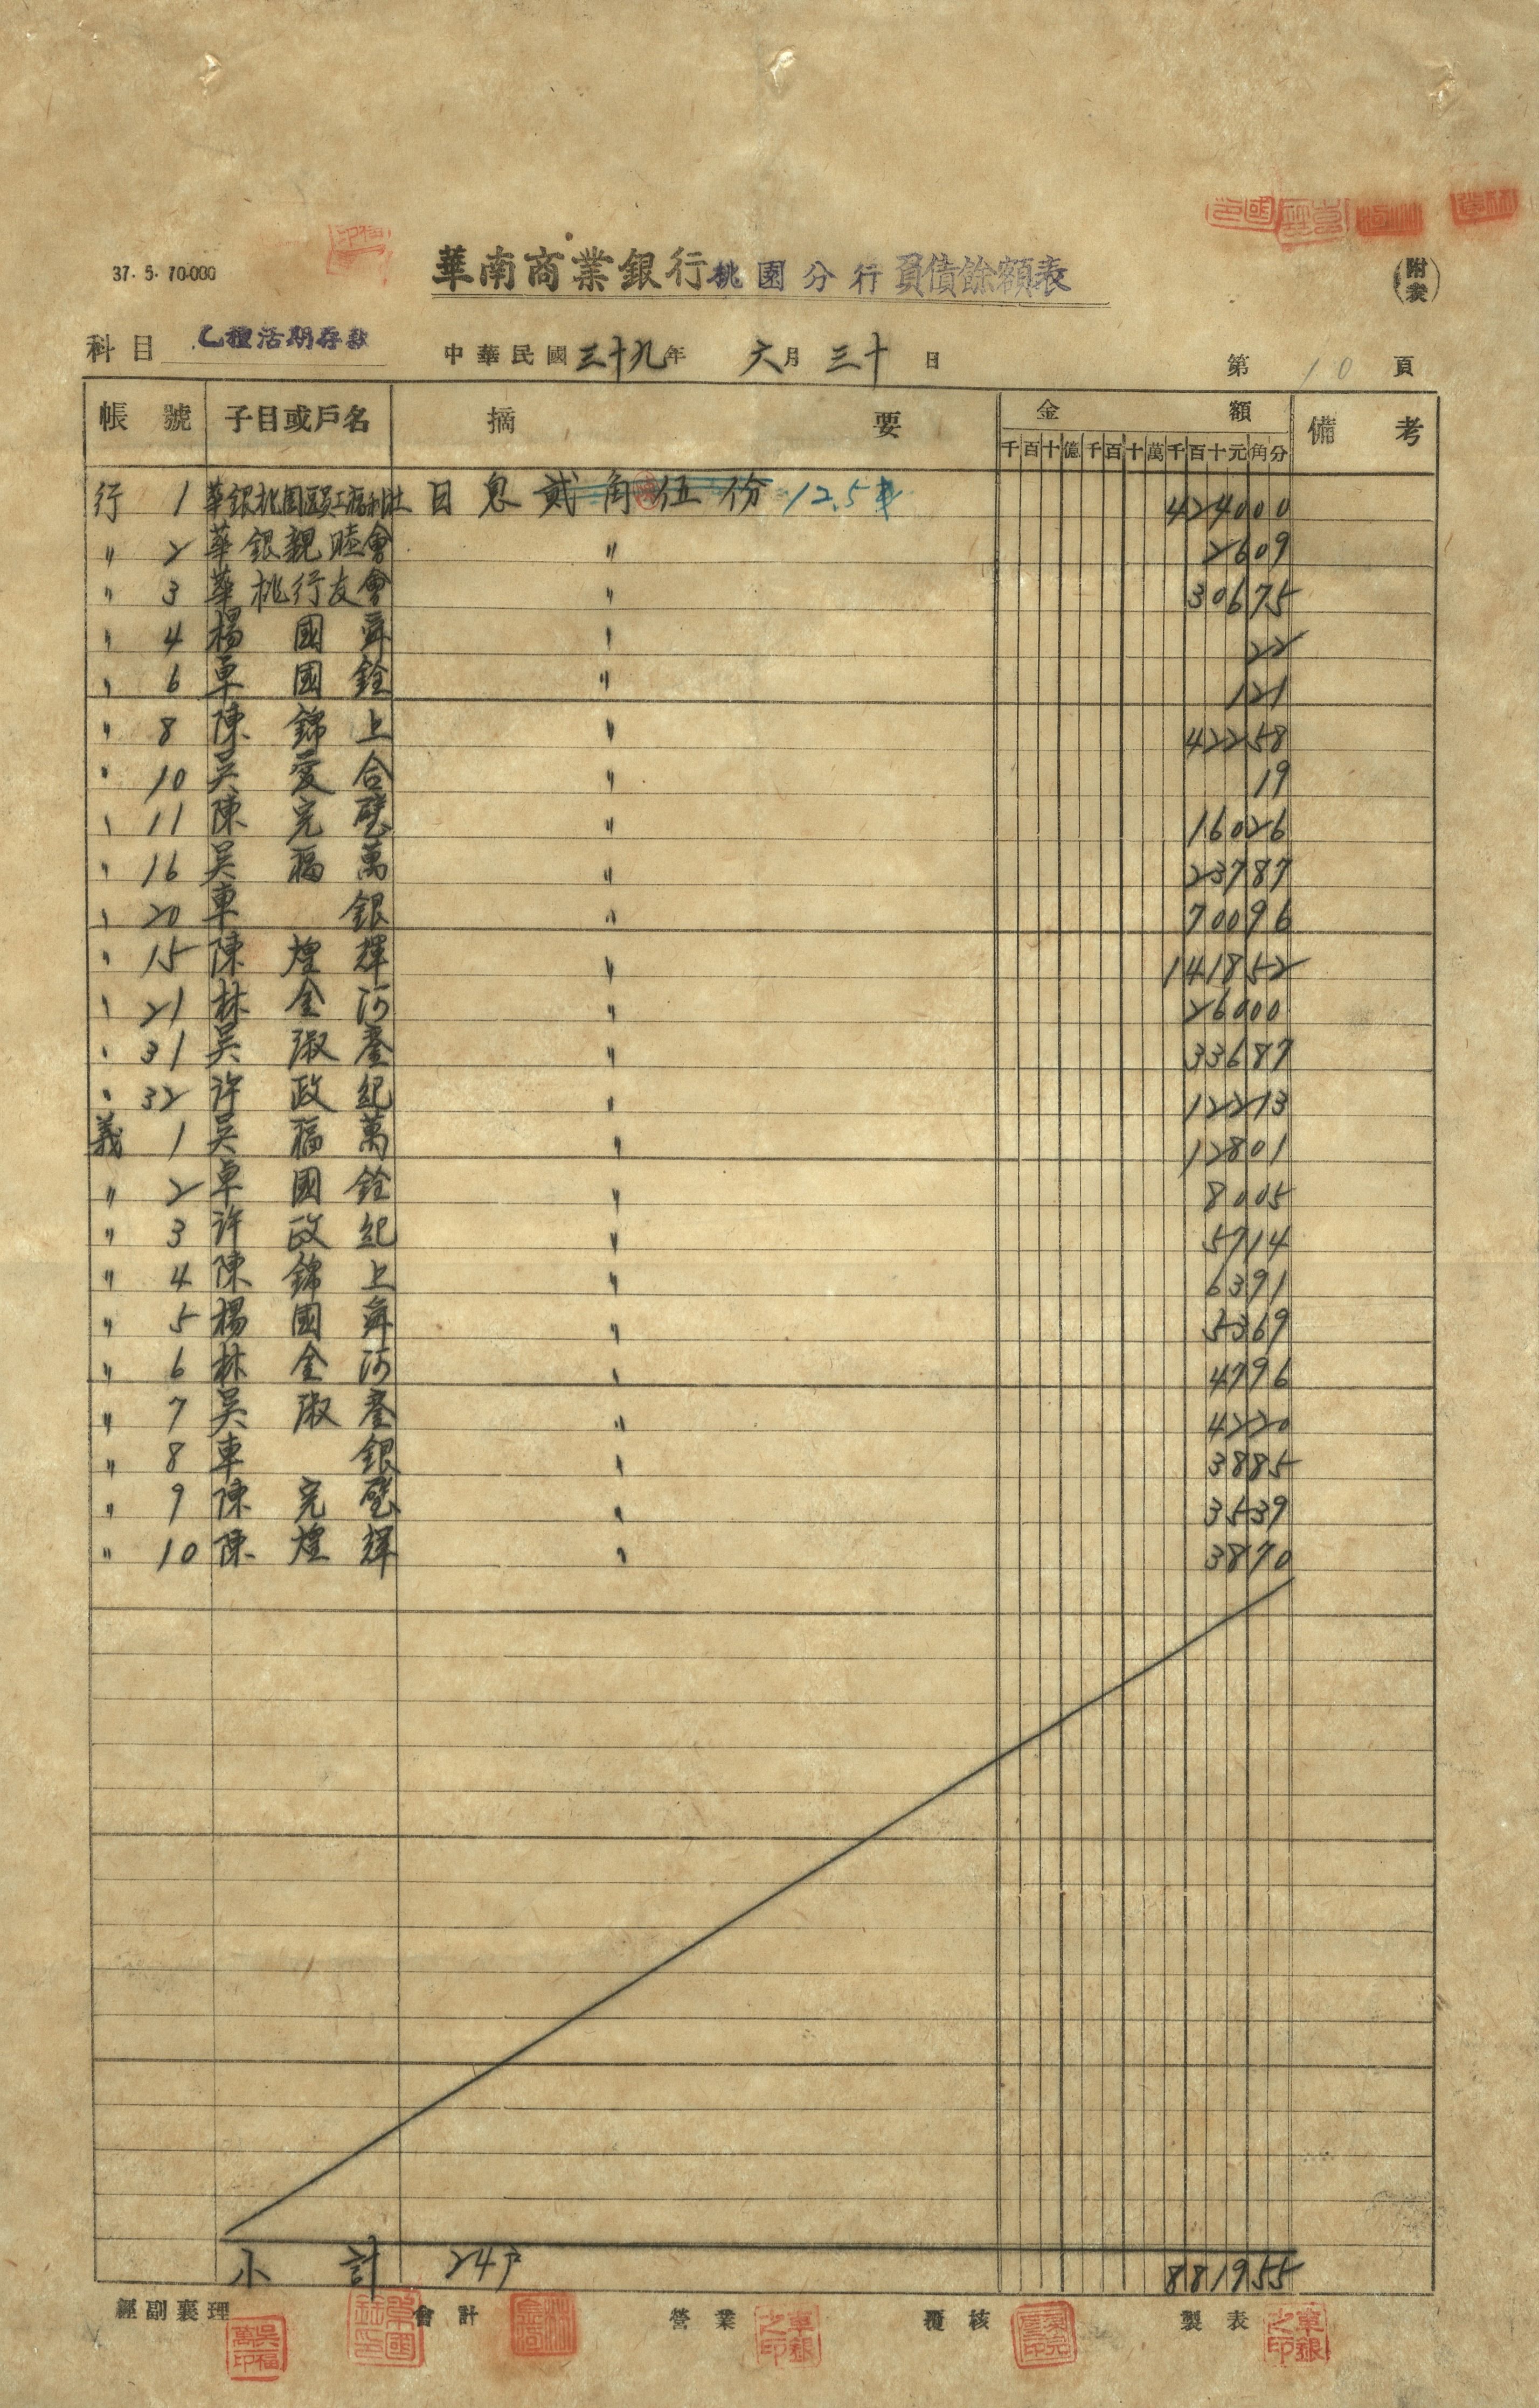 37. 5. 70.000
華南商業銀行桃園分行負債餘額表
(附表)
科目 乙種活期存款 中華民國三十九年 六月三十日 第 10 頁
帳號 子目或戶名 摘要 金額 備考
千百十億千百十萬千百十元角分
行 1 華銀桃園區員工福利社 日息貳角伍份 12.5 424000
〃 2 華銀親睦會 〃 2609
〃 3 華桃行友會 〃 30675
〃 4 楊國舜 〃 22
〃 6 卓國銓 〃 121
〃 8 陳錦上 〃 42258
〃 10 吳愛合 〃 19
〃 11 陳完璧 〃 16026
〃 16 吳福萬 〃 23787
〃 20 車銀 〃 70096
〃 15 陳煌輝 〃 141852
〃 21 林金河 〃 26000
〃 31 吳淑 〃 33687
〃 32 許政紀 〃 12213
義 1 吳福萬 〃 12801
〃 2 卓國銓 〃 8005
〃 3 許政紀 〃 5714
〃 4 陳錦上 〃 6391
〃 5 楊國舜 〃 5369
〃 6 林金河 〃 4796
〃 7 吳淑 〃 4220
〃 8 車銀 〃 3885
〃 9 陳完璧 〃 3539
〃 10 陳煌輝 〃 3870
小計 24戶 881955
經副襄理 會計 營業 覆核 製表
吳福萬印 卓國銓印 車銀之印 車銀之印